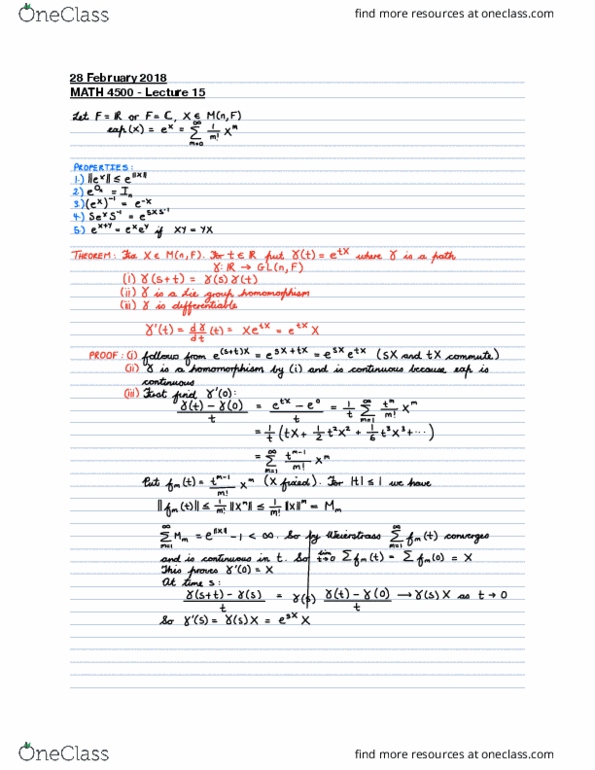 OneClass
find more resources at oneclass.com
28 February 2018
MATH 4500 - Lecture 15
Let F = ℝ or F = ℂ, X ∈ M(n,F)
exp(X) = e^X = ∑_{m=0}^∞ 1/m! X^m
PROPERTIES:
1.) ||e^X|| ≤ e^{||X||}
2.) e^{0_n} = I_n
3.) (e^X)^{-1} = e^{-X}
4.) Se^X S^{-1} = e^{SXS^{-1}}
5.) e^{X+Y} = e^X e^Y if XY = YX
THEOREM: Fix X ∈ M(n,F). For t ∈ ℝ put γ(t) = e^{tX} where γ is a path
γ: ℝ → GL(n,F)
(i) γ(s+t) = γ(s)γ(t)
(ii) γ is a Lie group homomorphism
(iii) γ is differentiable
γ'(t) = dγ/dt (t) = Xe^{tX} = e^{tX} X
PROOF: (i) follows from e^{(s+t)X} = e^{sX+tX} = e^{sX} e^{tX} (sX and tX commute)
(ii) γ is a homomorphism by (i) and is continuous because exp is
continuous
(iii) First find γ'(0):
(γ(t) - γ(0))/t = (e^{tX} - e^0)/t = 1/t ∑_{m=1}^∞ t^m/m! X^m
= 1/t (tX + 1/2 t²X² + 1/6 t³X³ + ⋯)
= ∑_{m=1}^∞ t^{m-1}/m! X^m
Put f_m(t) = t^{m-1}/m! X^m (X fixed). For |t| ≤ 1 we have
||f_m(t)|| ≤ 1/m! ||X^m|| ≤ 1/m! ||X||^m = M_m
∑_{m=1}^∞ M_m = e^{||X||} - 1 < ∞. So by Weierstrass ∑_{m=1}^∞ f_m(t) converges
and is continuous in t. So lim_{t→0} ∑ f_m(t) = ∑ f_m(0) = X
This proves γ'(0) = X
At time s:
(γ(s+t) - γ(s))/t = γ(s) (γ(t) - γ(0))/t → γ(s)X as t → 0
So γ'(s) = γ(s)X = e^{sX} X
OneClass
find more resources at oneclass.com